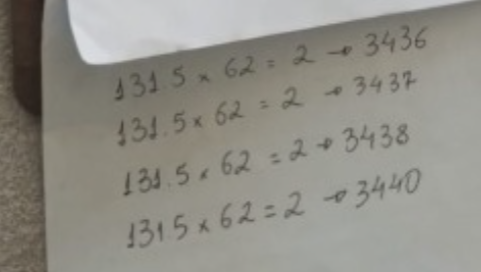 131.5 × 62 = 2 → 3436
131.5 × 62 = 2 → 3437
131.5 × 62 = 2 → 3438
131.5 × 62 = 2 → 3440